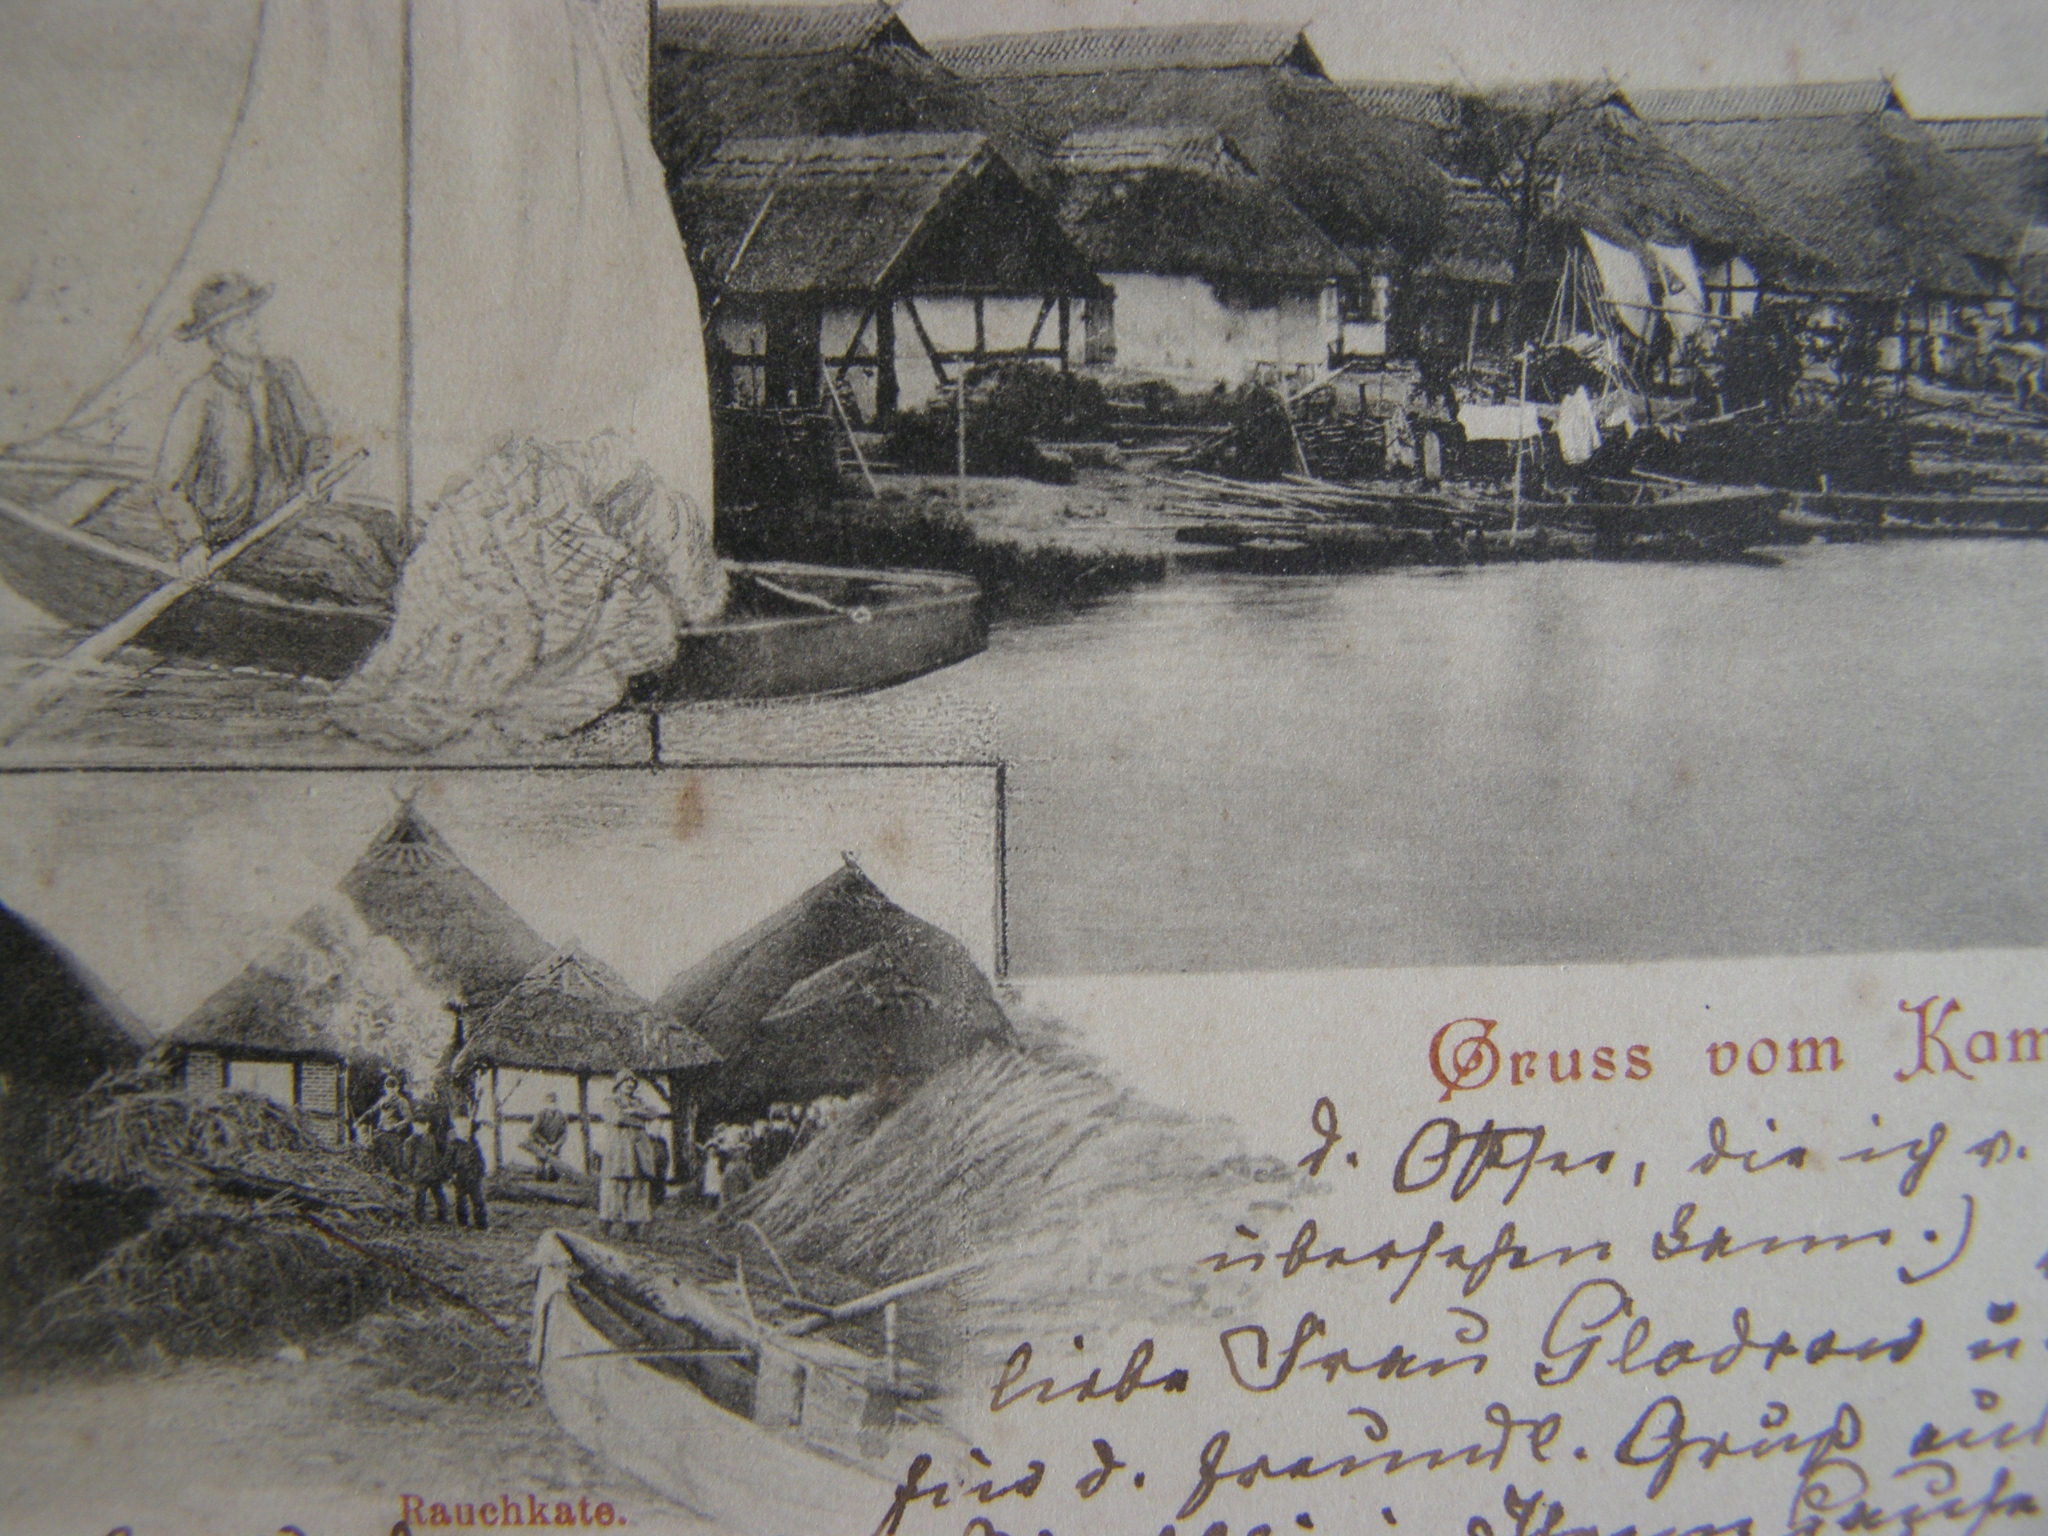 Gruss vom Kam
d. Ostsee, die ich v.
übersehen kann.)
liebe Frau Gladrow u.
für d. freundl. Gruß
Rauchkate.